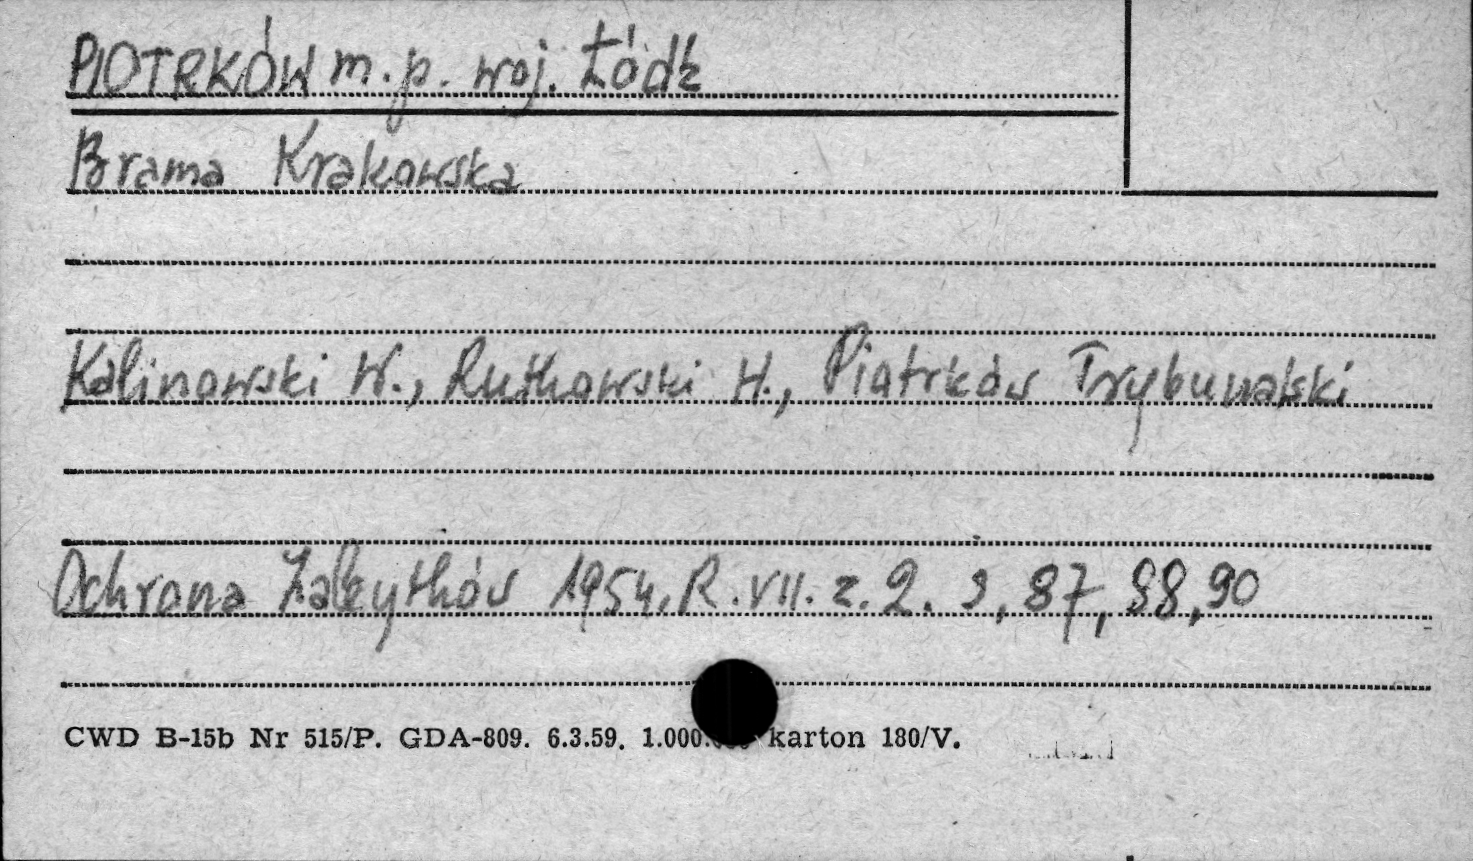 PIOTRKÓW m.p. woj. Łódź
Brama Krakowska
Kalinowski W., Rutkowski H., Piotrków Trybunalski
Ochrona Zabytków 1954, R. VII. z. 2. s, 87, 88, 90
CWD B-15b Nr 515/P. GDA-809. 6.3.59. 1.000. karton 180/V.